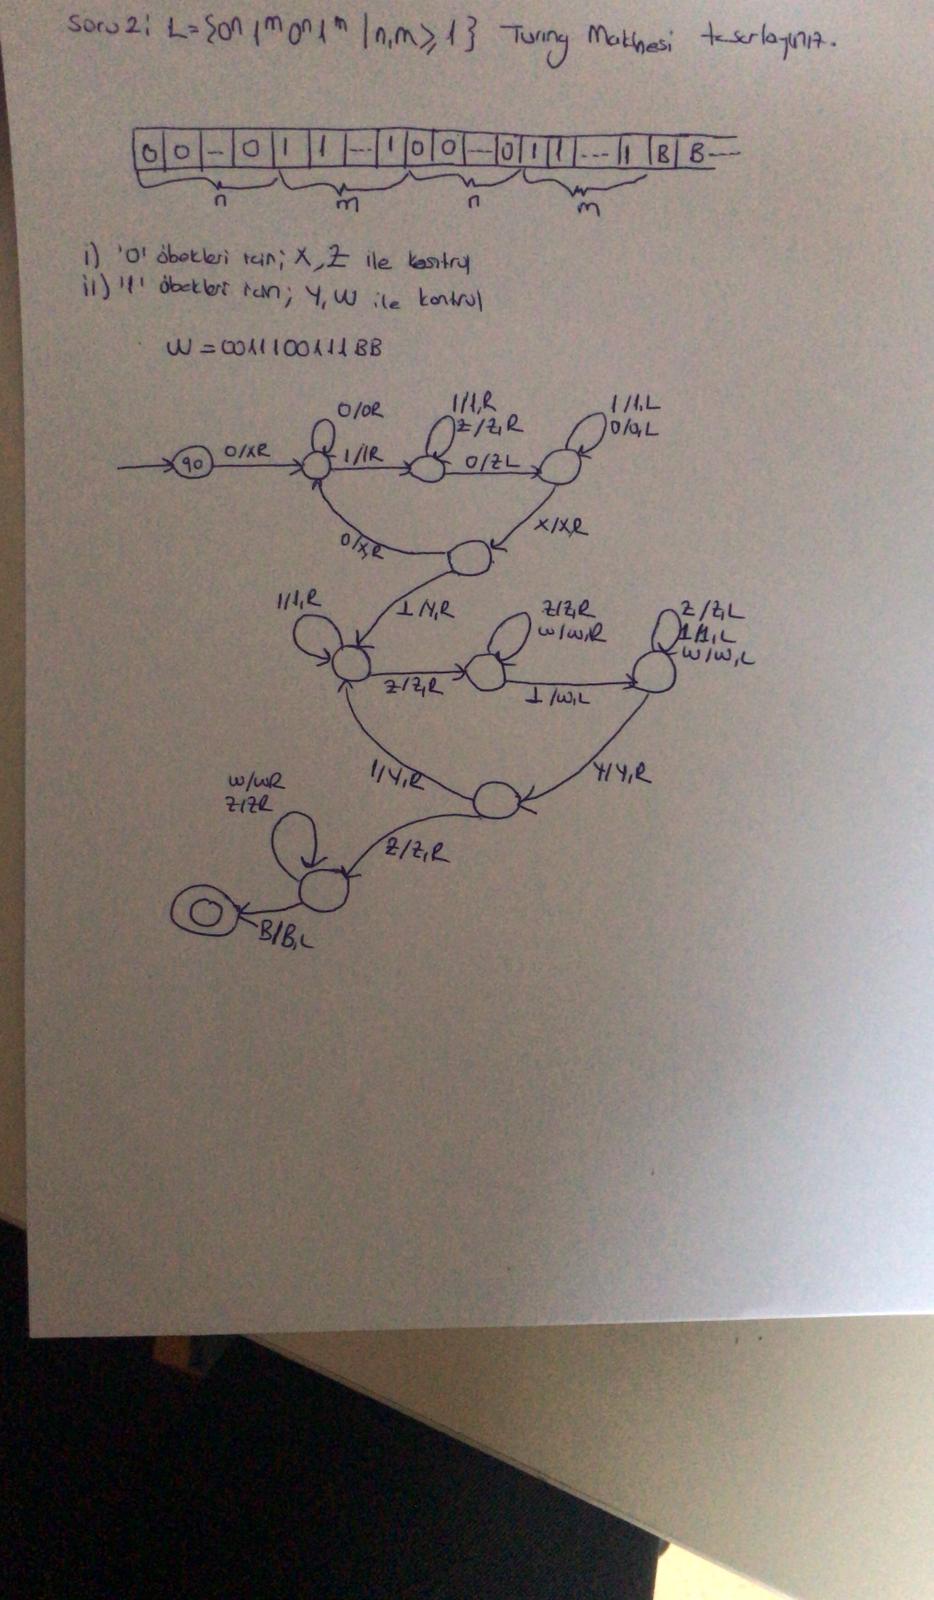 Soru 2: L={0ⁿ 1ᵐ 0ⁿ 1ᵐ | n,m ≥ 1} Turing Makinesi tasarlayınız.
0 0 -- 0 1 1 --- 1 0 0 --- 0 1 1 --- 1 B B ---
n m n m
i) '0' öbekleri için; X, Z ile kontrol
ii) '1' öbekleri için; Y, W ile kontrol
W = 0011100111BB
0/0R 1/1,R 1/1,L
Z/Z,R 0/0,L
q0 0/XR 1/1R 0/ZL
X/X,R
0/X,R
1/Y,R
1/1,R Z/Z,R Z/Z,L
W/W,R 1/1,L
W/W,L
Z/Z,R 1/W,L
1/Y,R Y/Y,R
W/WR
Z/ZR
Z/Z,R
B/B,L